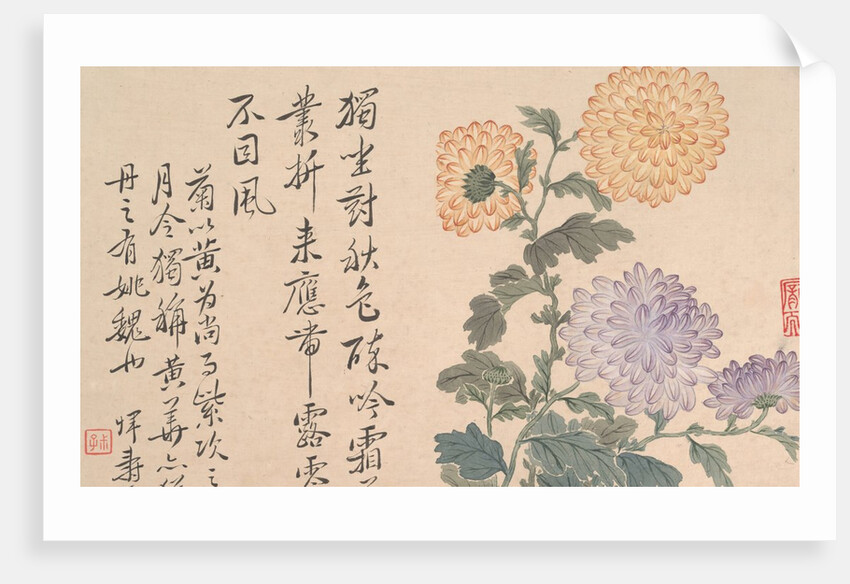 獨坐對秋色醉吟霜
叢折來應帶露零
不因風
菊以黃为尚而紫次之
月令獨稱黃華亦猶
丹之有姚魏也
惲壽